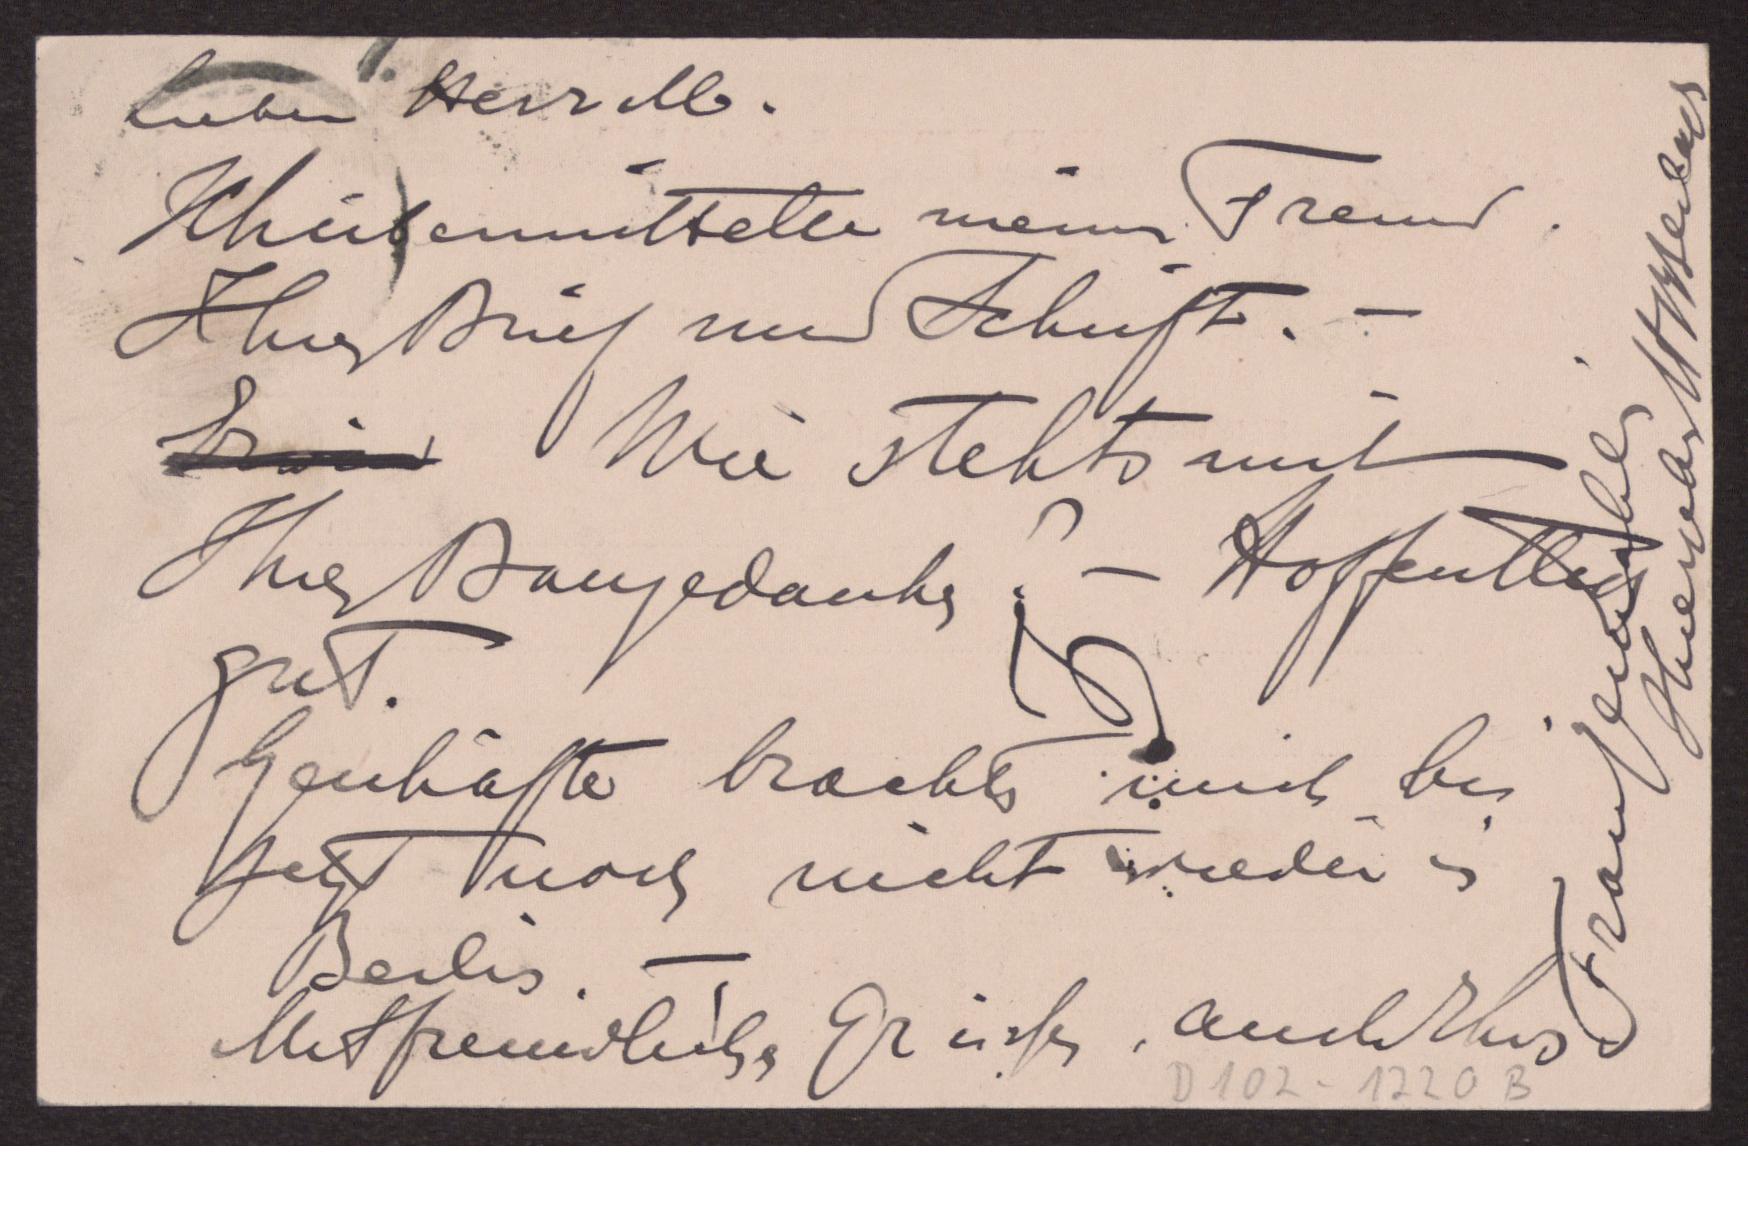 Lieber Herr M.
Ich übermittelte meinem Freund
Ihren Brief und Schrift. –
Wie stehts mit
Ihren Baugedanken? – Hoffentlich
gut.
Geschäfte brachten mich bis
jetzt noch nicht wieder in
Berlin. –
Mit freundlichen Grüßen, auch Ihrer
Frau Gemahlin
D 102 - 1220 B